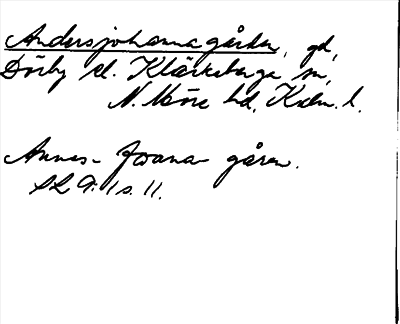 Andersjohannagården, gd,
Dörby sn. Kläckeberga sn,
N. Möre hd, Kalm. l.
Annes-Joana gåren.
SL 9:1 s. 11.